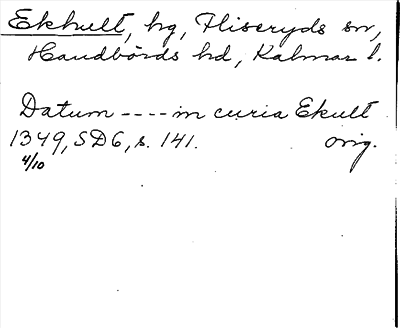 Ekhult, hg, Fliseryds sn,
Handbörds hd, Kalmar l.
Datum ---- in curia Ekult
1349, SD6, s. 141. orig.
4/10